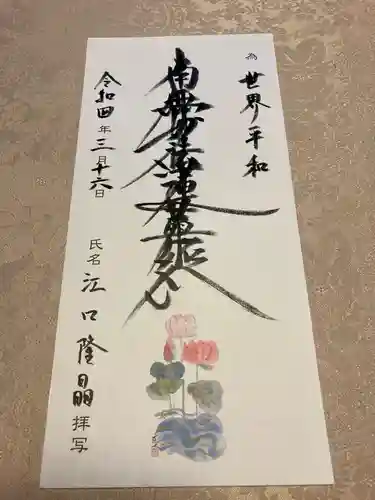 為 世界平和
南無妙法蓮華経
令和四年三月十六日
氏名 江口隆晶 拝写